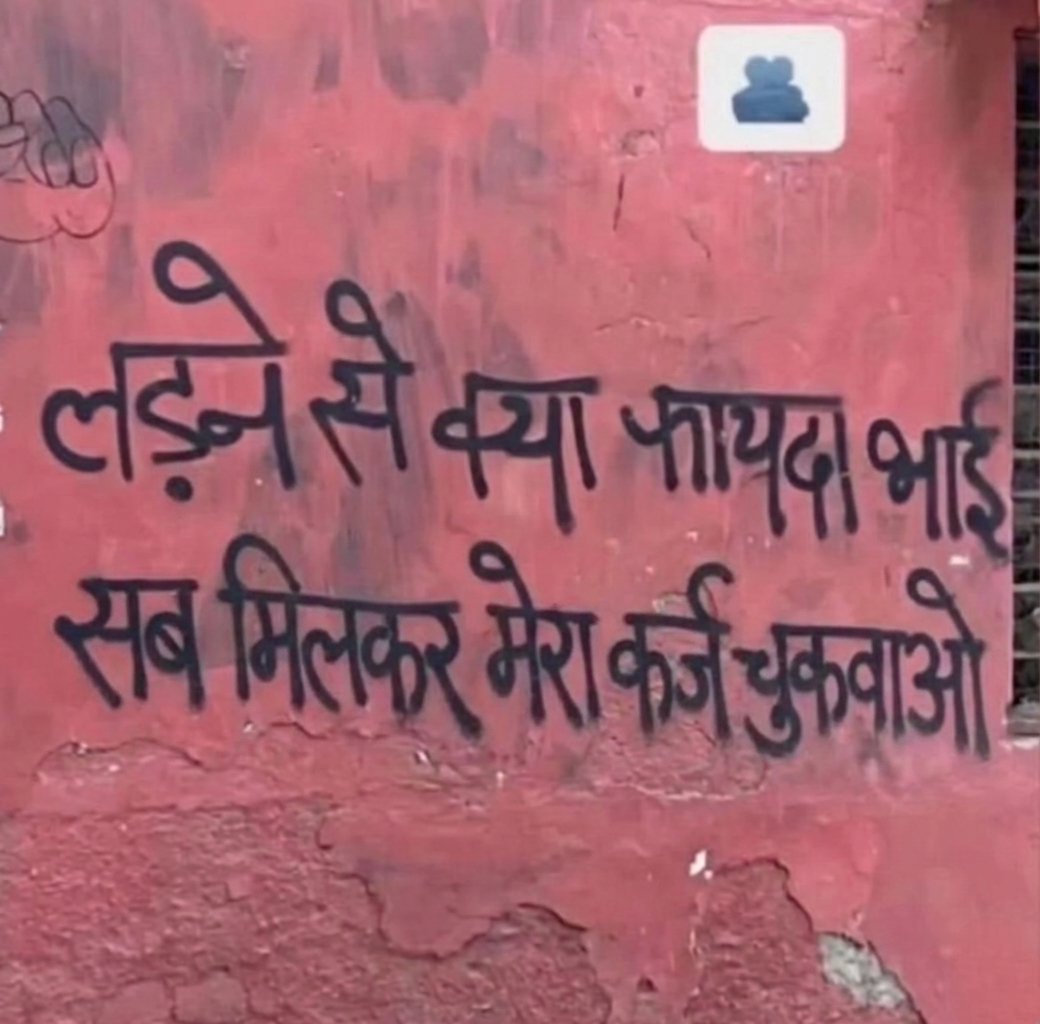 लड़ने से क्या फायदा भाई
सब मिलकर मेरा कर्ज चुकवाओ